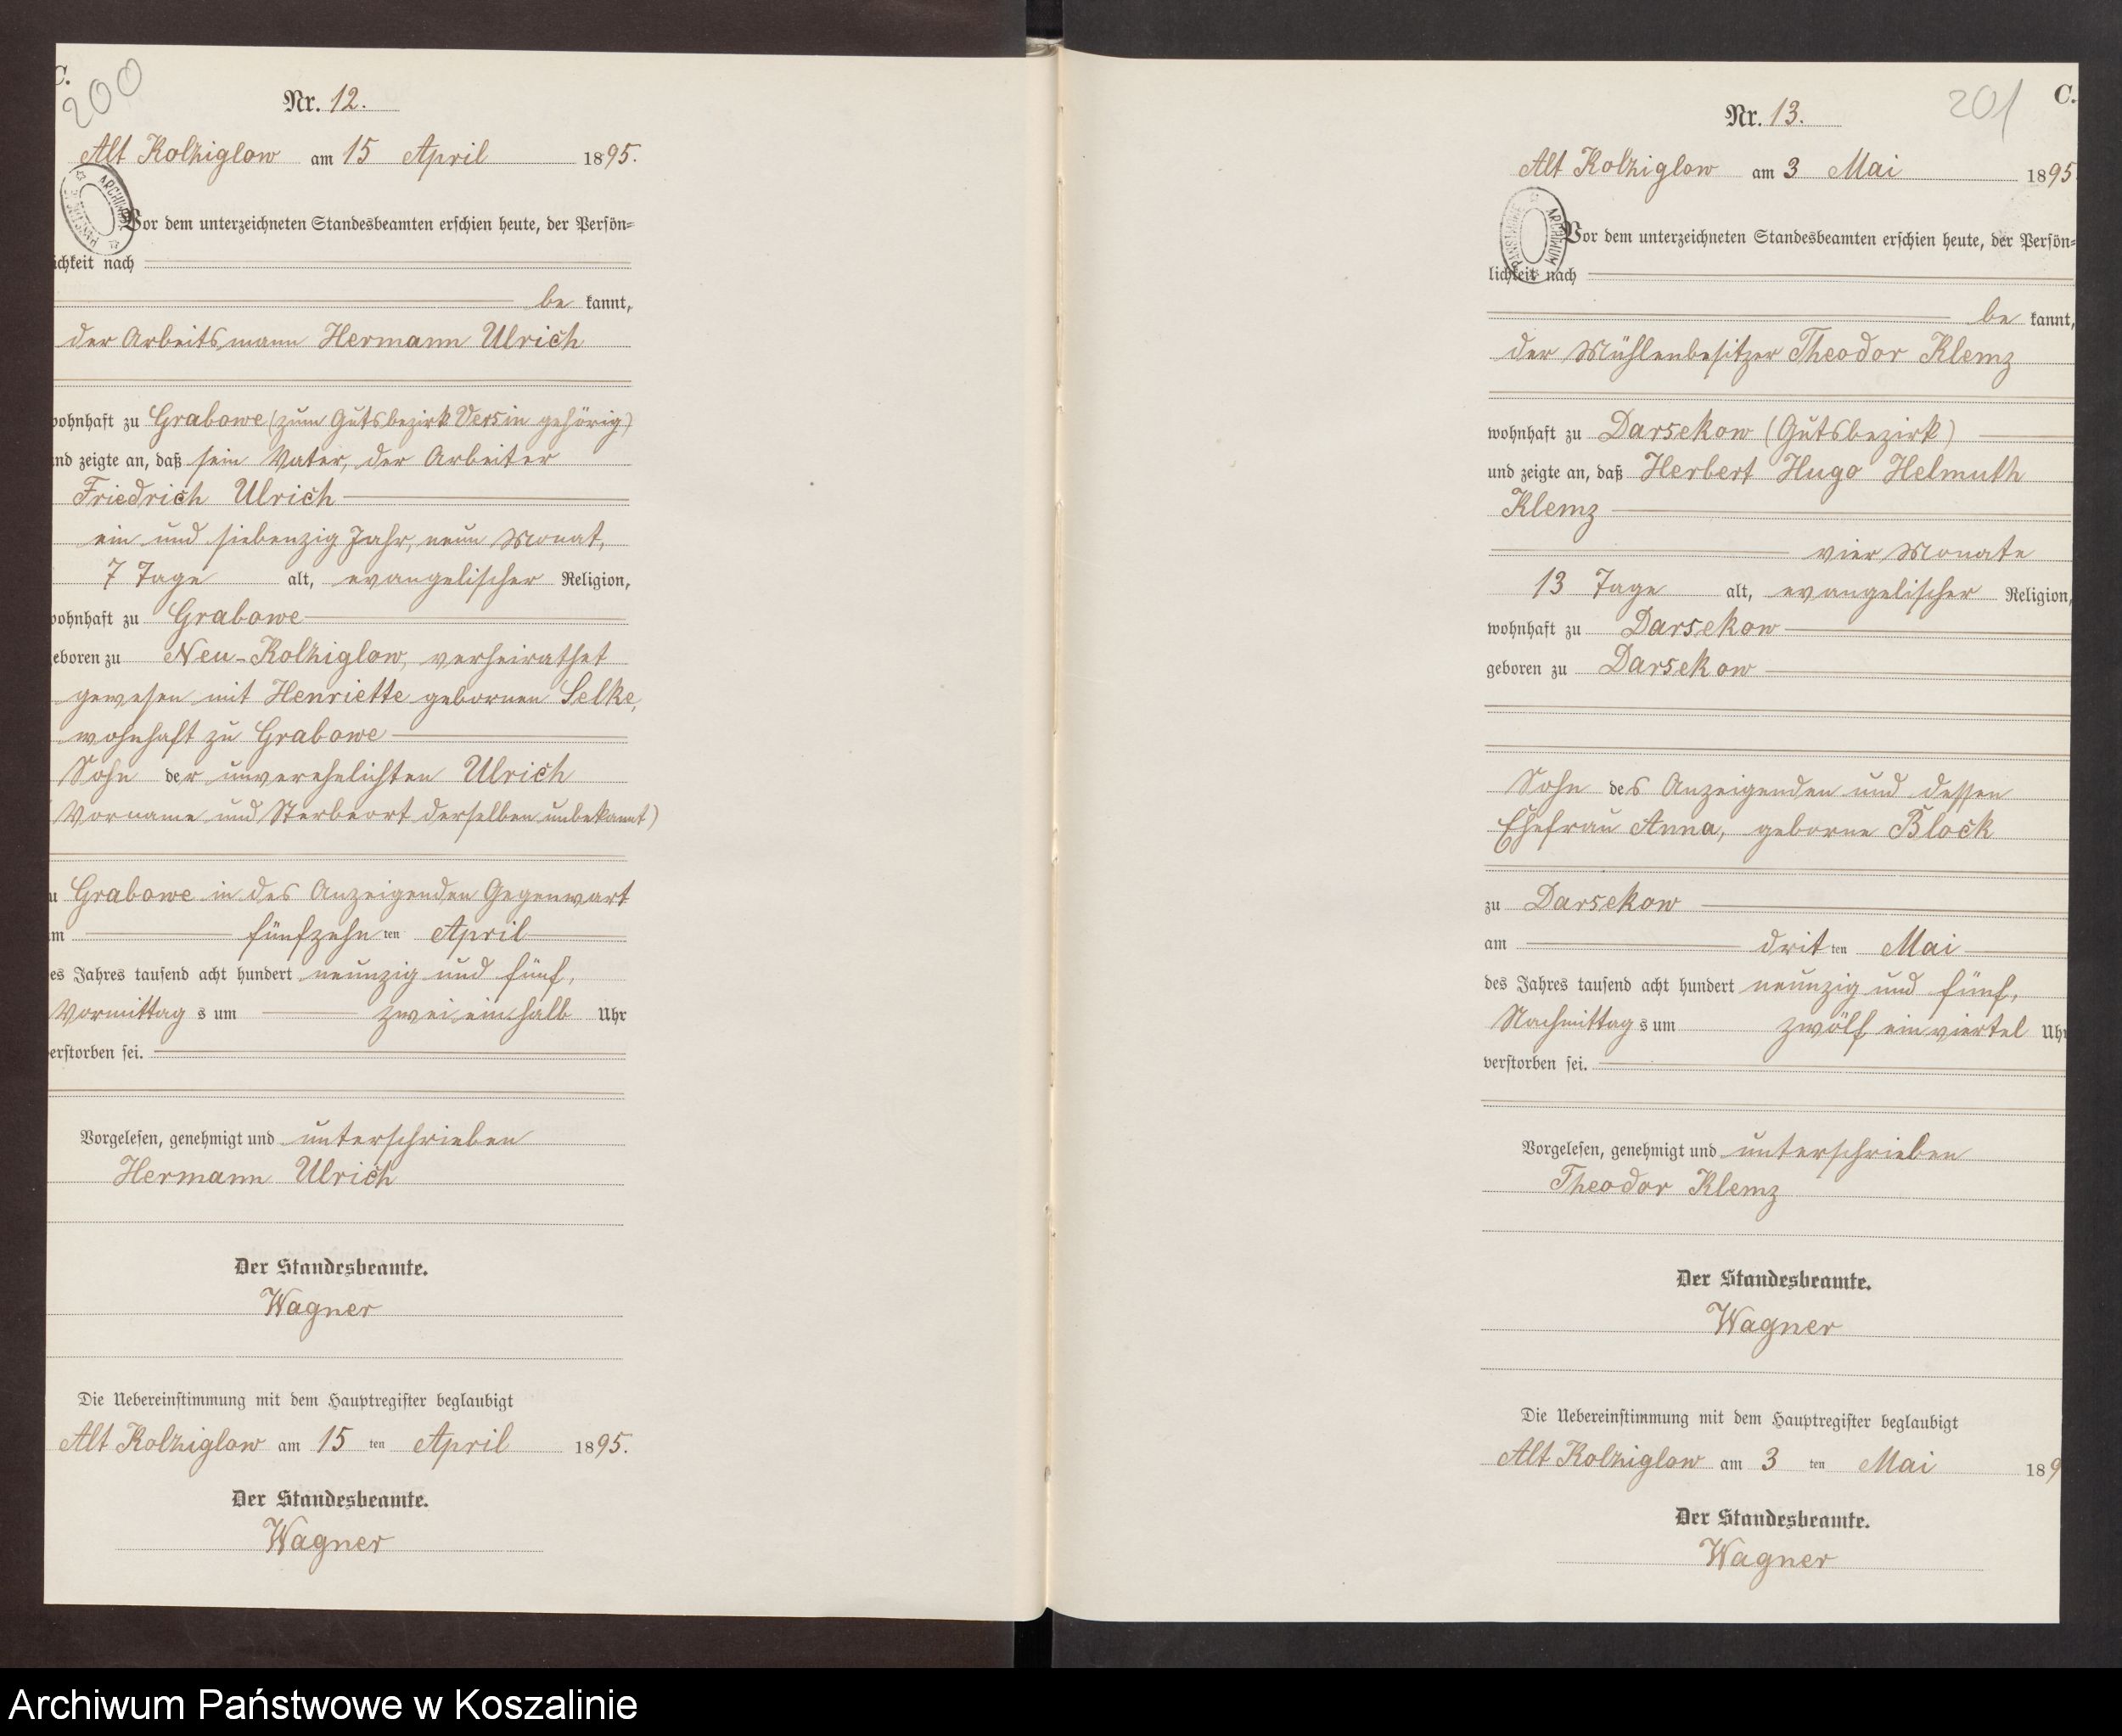 C.
200
Nr. 12.
Alt Kolziglow am 15 April 1895.
ARCHIWUM PAŃSTWOWE
Vor dem unterzeichneten Standesbeamten erschien heute, der Persön=
ichkeit nach
be kannt,
der Arbeitsmann Hermann Ulrich
wohnhaft zu Grabowe (zum Gutsbezirk Versin gehörig)
nd zeigte an, daß sein Vater, der Arbeiter
Friedrich Ulrich
ein und siebenzig Jahr, neun Monat,
7 Tage alt, evangelischer Religion,
wohnhaft zu Grabowe
eboren zu Neu-Kolziglow, verheirathet
gewesen mit Henriette gebornen Selke,
wohnhaft zu Grabowe
Sohn der unverehelichten Ulrich
(Vorname und Sterbeort derselben unbekannt)
u Grabowe in des Anzeigenden Gegenwart
m fünfzehn ten April
es Jahres tausend acht hundert neunzig und fünf,
Vormittag s um zwei ein halb Uhr
erstorben sei.
Vorgelesen, genehmigt und unterschrieben
Hermann Ulrich
Der Standesbeamte.
Wagner
Die Uebereinstimmung mit dem Hauptregister beglaubigt
Alt Kolziglow am 15 ten April 1895.
Der Standesbeamte.
Wagner
201
C.
Nr. 13.
Alt Kolziglow am 3 Mai 1895
ARCHIWUM PAŃSTWOWE
Vor dem unterzeichneten Standesbeamten erschien heute, der Persön=
lichkeit nach
be kannt,
der Mühlenbesitzer Theodor Klemz
wohnhaft zu Darsekow (Gutsbezirk)
und zeigte an, daß Herbert Hugo Helmuth
Klemz
vier Monate
13 Tage alt, evangelischer Religion,
wohnhaft zu Darsekow
geboren zu Darsekow
Sohn des Anzeigenden und dessen
Ehefrau Anna, geborne Block
zu Darsekow
am drit ten Mai
des Jahres tausend acht hundert neunzig und fünf,
Nachmittag s um zwölf ein viertel Uhr
verstorben sei.
Vorgelesen, genehmigt und unterschrieben
Theodor Klemz
Der Standesbeamte.
Wagner
Die Uebereinstimmung mit dem Hauptregister beglaubigt
Alt Kolziglow am 3 ten Mai 189
Der Standesbeamte.
Wagner
Archiwum Państwowe w Koszalinie